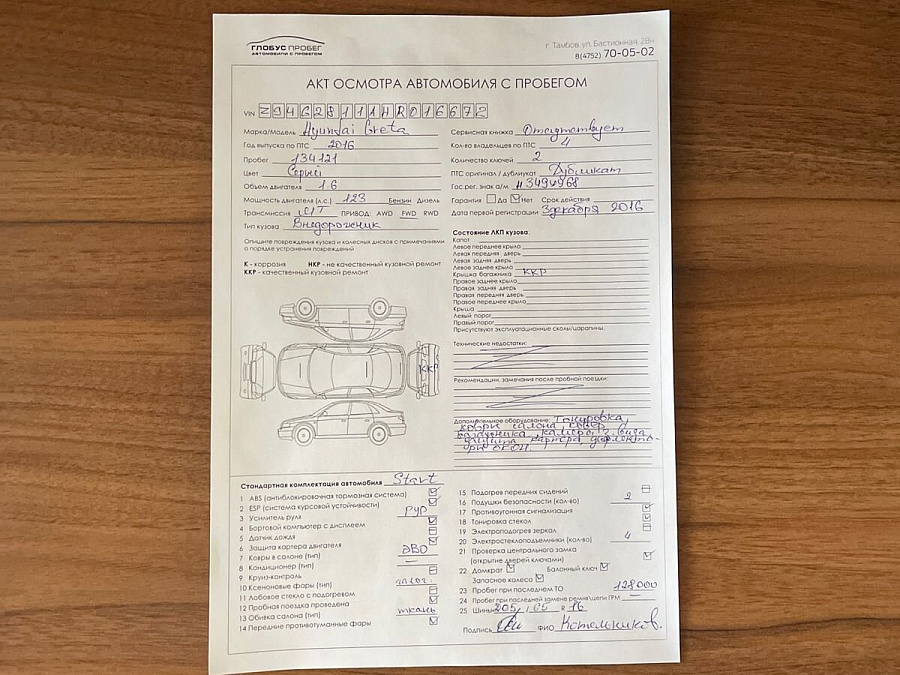 ГЛОБУС ПРОБЕГ
АВТОМОБИЛИ С ПРОБЕГОМ
г. Тамбов, ул. Бастионная, 28н
8(4752) 70-05-02
АКТ ОСМОТРА АВТОМОБИЛЯ С ПРОБЕГОМ
VIN Z94G28111HR016672
Марка/Модель Hyundai Creta
Год выпуска по ПТС 2016
Пробег 134121
Цвет Серый
Объем двигателя 1.6
Мощность двигателя (л.с.) 123 Бензин Дизель
Трансмиссия ПРИВОД: AWD FWD RWD
Тип кузова Внедорожник
Опишите повреждения кузова и колесных дисков с примечаниями
о порядке устранения повреждений
К - коррозия НКР - не качественный кузовной ремонт
ККР - качественный кузовной ремонт
ККР
Сервисная книжка Отсутствует
Кол-во владельцев по ПТС 4
Количество ключей 2
ПТС оригинал / дубликат Дубликат
Гос.рег. знак а/м
Гарантия Да Нет Срок действия
Дата первой регистрации 3 декабря 2016
Состояние ЛКП кузова:
Капот
Левое переднее крыло
Левая передняя дверь
Левая задняя дверь
Левое заднее крыло
Крышка багажника ККР
Правое заднее крыло
Правая задняя дверь
Правая передняя дверь
Правое переднее крыло
Крыша
Левый порог
Правый порог
Присутствуют эксплуатационные сколы/царапины.
Технические недостатки:
Рекомендации, замечания после пробной поездки:
Дополнительное оборудование: Тонировка,
ковры салона, ковер
багажника, камера з.вида
защита картера дефлекто-
ры окон.
Стандартная комплектация автомобиля Start
1 ABS (антиблокировочная тормозная система)
2 ESP (система курсовой устойчивости)
3 Усилитель руля РУР
4 Бортовой компьютер с дисплеем
5 Датчик дождя
6 Защита картера двигателя
7 Ковры в салоне (тип) ЭВО
8 Кондиционер (тип) —
9 Круиз-контроль
10 Ксеноновые фары (тип) галог.
11 Лобовое стекло с подогревом
12 Пробная поездка проведена
13 Обивка салона (тип) ткань
14 Передние противотуманные фары
15 Подогрев передних сидений
16 Подушки безопасности (кол-во) 2
17 Противоугонная сигнализация
18 Тонировка стекол
19 Электроподогрев зеркал
20 Электростеклоподъемники (кол-во) 4
21 Проверка центрального замка
(открытие дверей ключами)
22 Домкрат Балонный ключ
Запасное колесо
23 Пробег при последнем ТО 128000
24 Пробег при последней замене ремня\цепи ГРМ —
25 Шины 205/65 R 16
Подпись ФИО Котельников.